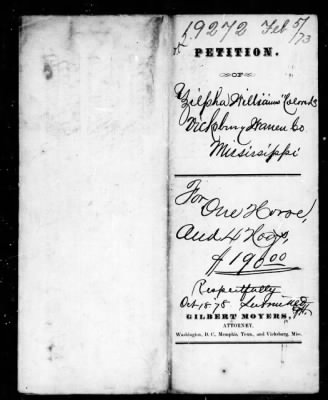 19272 Feb 5/73
PETITION.
OF
Zilpha Williams Colored
Vicksburg Warren Co
Mississippi
For
One Horse,
And 4 Hogs,
$190.00
Respectfully
Oct 1878 Submitted
GILBERT MOYERS,
ATTORNEY,
Washington, D. C. Memphis, Tenn., and Vicksburg, Miss.